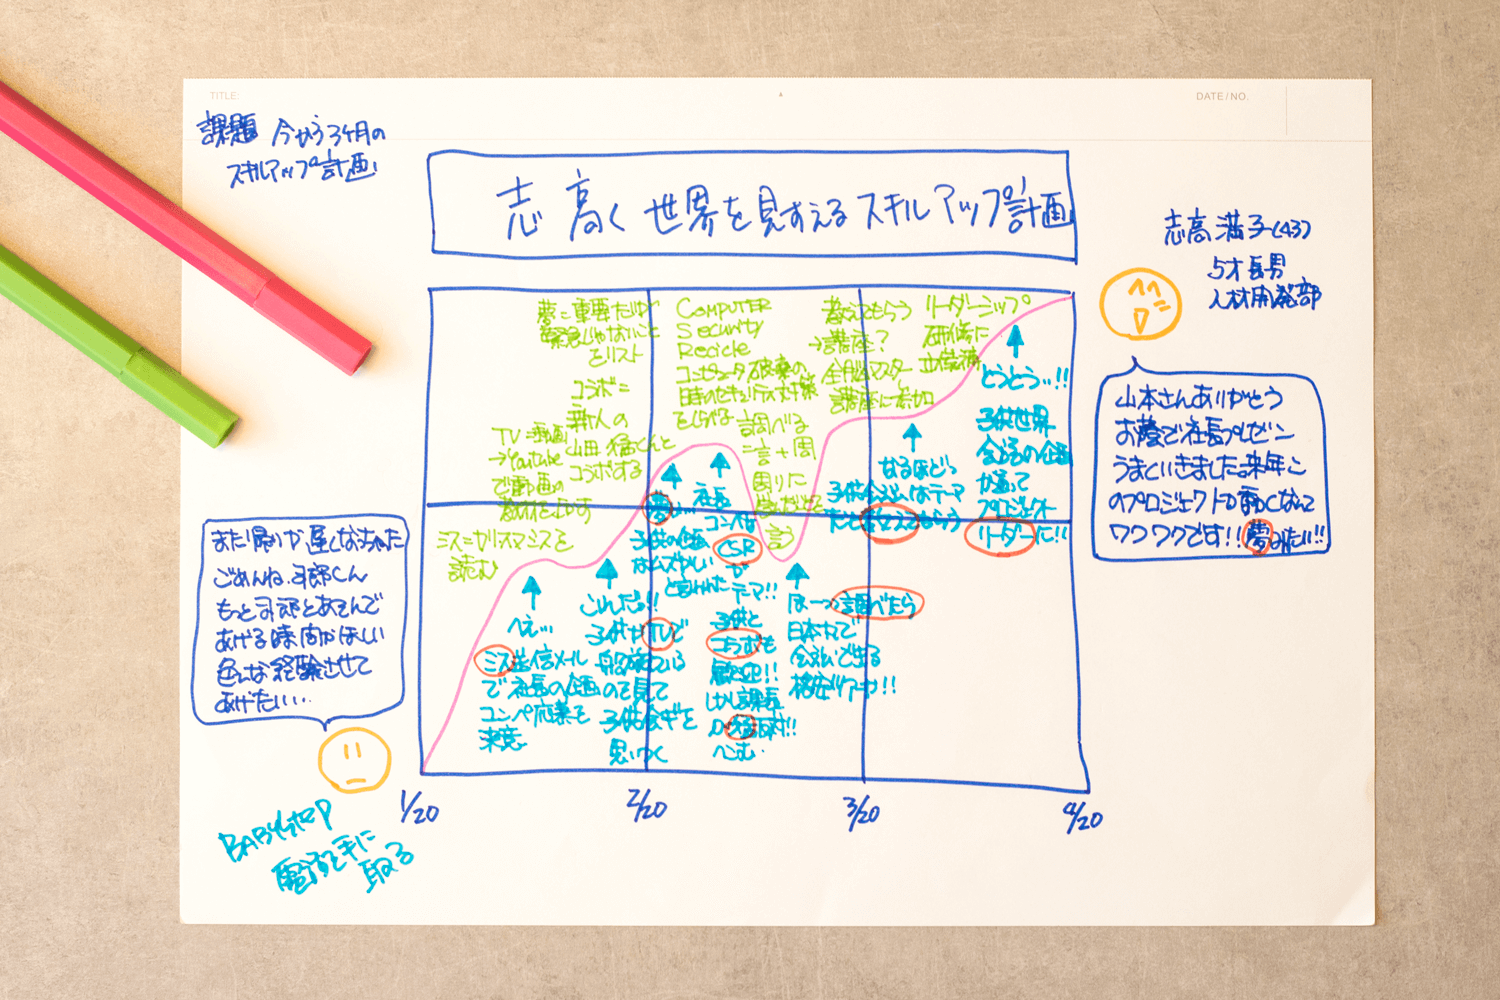 TITLE.
DATE/NO.
課題 今から3ヶ月の
スキルアップ計画
志高く世界を見すえるスキルアップ計画
志高満子(43)
5才長男
人材開発部
山本さんありがとう
お蔭で社長プレゼン
うまくいきました来年こ
のプロジェクトも動くなんて
ワクワクです!!夢みたい!!
夢=重要だけど
緊急じゃないこと
をリスト
コラボ=
新人の
山田 猛くんと
コラボする
TV=動画
→Youtube
で動画の
ミス=カリスマミスを
読む
COMPUTER
Security
Recicle
コンピュータ破棄の
時のセキュリティ対策
をしらべる
調べる
=言+周
周りに
言う
教えてもらう
→講座?
全脳マスター
講座に参加
リーダーシップ
研修に
とうとう…!!
子供世界
会議の企画
が通って
プロジェクト
リーダーに!!
なるほどっ
子供会議はテーマ
夢…
子供の企画
はムズかしい
と言われた
社長
コンペは
CSR
が
テーマ!!
子供と
コラボも
歓迎!!
しかし課長
が猛反対!!
へこむ…
へぇ…
ミス送信メール
で社長の企画
コンペ応募を
決意
これだっ!!
子供がTVで
のを見て
子供会議を
思いつく
ほーっ調べたら
日本カで
会議で出る
格安ツアーが!!
また帰りが遅くなっちゃった
ごめんね、司郎くん
もっと司郎とあそんで
あげる時間がほしい
色んな経験させて
あげたい…
1/20
2/20
3/20
4/20
BABYstep
電話を手に
取る